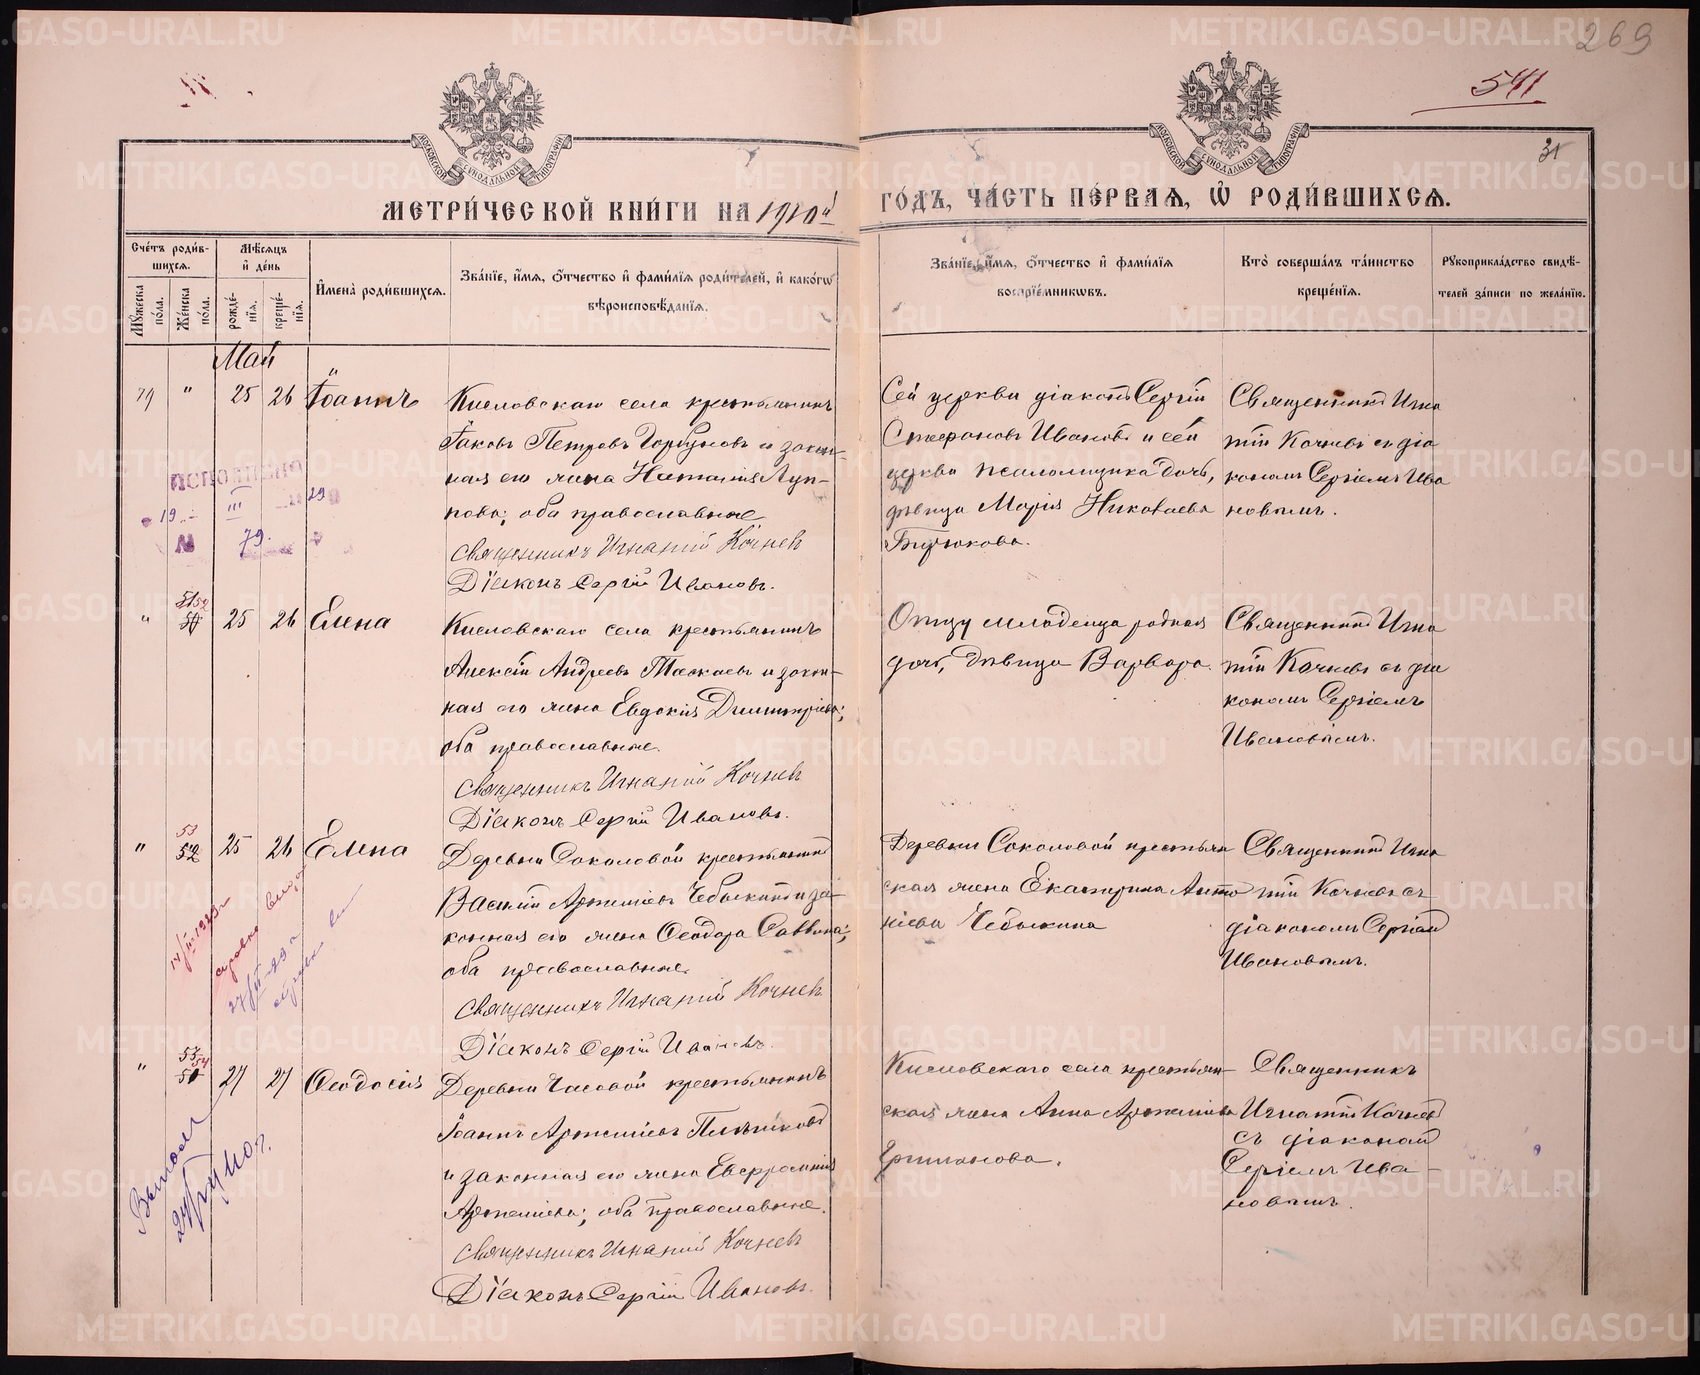 269
541
31
МОСКОВСКОЙ СѴНОДАЛЬНОЙ ТИПОГРАФІИ
МОСКОВСКОЙ СѴНОДАЛЬНОЙ ТИПОГРАФІИ
МЕТРИ́ЧЕСКОЙ КНИ́ГИ НА 1910й ГО́ДЪ, ЧА́СТЬ ПЕ́РВАѦ, Ѡ҆ РОДИ́ВШИХСѦ.
Сче́тъ роди́в-
шихсѧ.
Мꙋ́жеска по́ла.
Же́нска по́ла.
Мѣ́сѧцъ
и҆ де́нь
рожде́-
нїѧ.
креще́-
нїѧ.
И҆мена̀ роди́вшихсѧ.
Зва́нїе, и҆́мѧ, ѻ҆́тчество и҆ фами́лїѧ роди́телей, и҆ како́гѡ
вѣроисповѣ́данїѧ.
Зва́нїе, и҆́мѧ, ѻ҆́тчество и҆ фами́лїѧ
воспрїе́мникѡвъ.
Кто̀ соверша́лъ та́инство
креще́нїѧ.
Рꙋкоприкла́дство свидѣ́-
телей за́писи по жела́нїю.
Май
79 " 25 26 Іоаннъ
Кисловскаго села крестьянинъ
Іаковъ Петровъ Горбуновъ и закон-
ная его жена Наталія Луп-
пова; оба православные
Священникъ Игнатій Кочневъ
Діаконъ Сергій Ивановъ.
Сей церкви діаконъ Сергій
Стефановъ Ивановъ и сей
церкви псаломщика дочь,
дѣвица Марія Николаева
Бирюкова.
Священникъ Игна
тій Кочневъ съ діа
кономъ Сергіемъ Ива
новымъ.
ИСПОЛНЕНО
19 III 29
№ 79
" 52 25 26 Елена
Кисловскаго села крестьянинъ
Алексій Андреевъ Таскаевъ и закон-
ная его жена Евдокія Димитріева;
оба православные.
Священникъ Игнатій Кочневъ
Діаконъ Сергій Ивановъ.
Отцу младенца родная
дочь, дѣвица Варвара.
Священникъ Игна
тій Кочневъ съ діа
кономъ Сергіемъ
Ивановымъ.
53
" 52 25 26 Елена
Деревни Соколовой крестьянинъ
Василій Артеміевъ Чебыкинъ и за-
конная его жена Ѳеодора Саввина;
оба православные.
Священникъ Игнатій Кочневъ
Діаконъ Сергій Ивановъ.
Деревни Соколовой крестьян
ская жена Екатерина Анто
ніева Чебыкина
Священникъ Игна
тій Кочневъ съ
діакономъ Сергіемъ
Ивановымъ.
54
" 27 27 Ѳеодосія
Деревни Часовой крестьянинъ
Іоаннъ Артеміевъ Плѣшковъ
и законная его жена Евфросинія
Артеміева; оба православные.
Священникъ Игнатій Кочневъ
Діаконъ Сергій Ивановъ.
Кисловскаго села крестьян-
ская жена Анна Артеміева
Священникъ
Игнатій Кочневъ
съ діакономъ
Сергіемъ Ива-
новымъ.
METRIKI.GASO-URAL.RU